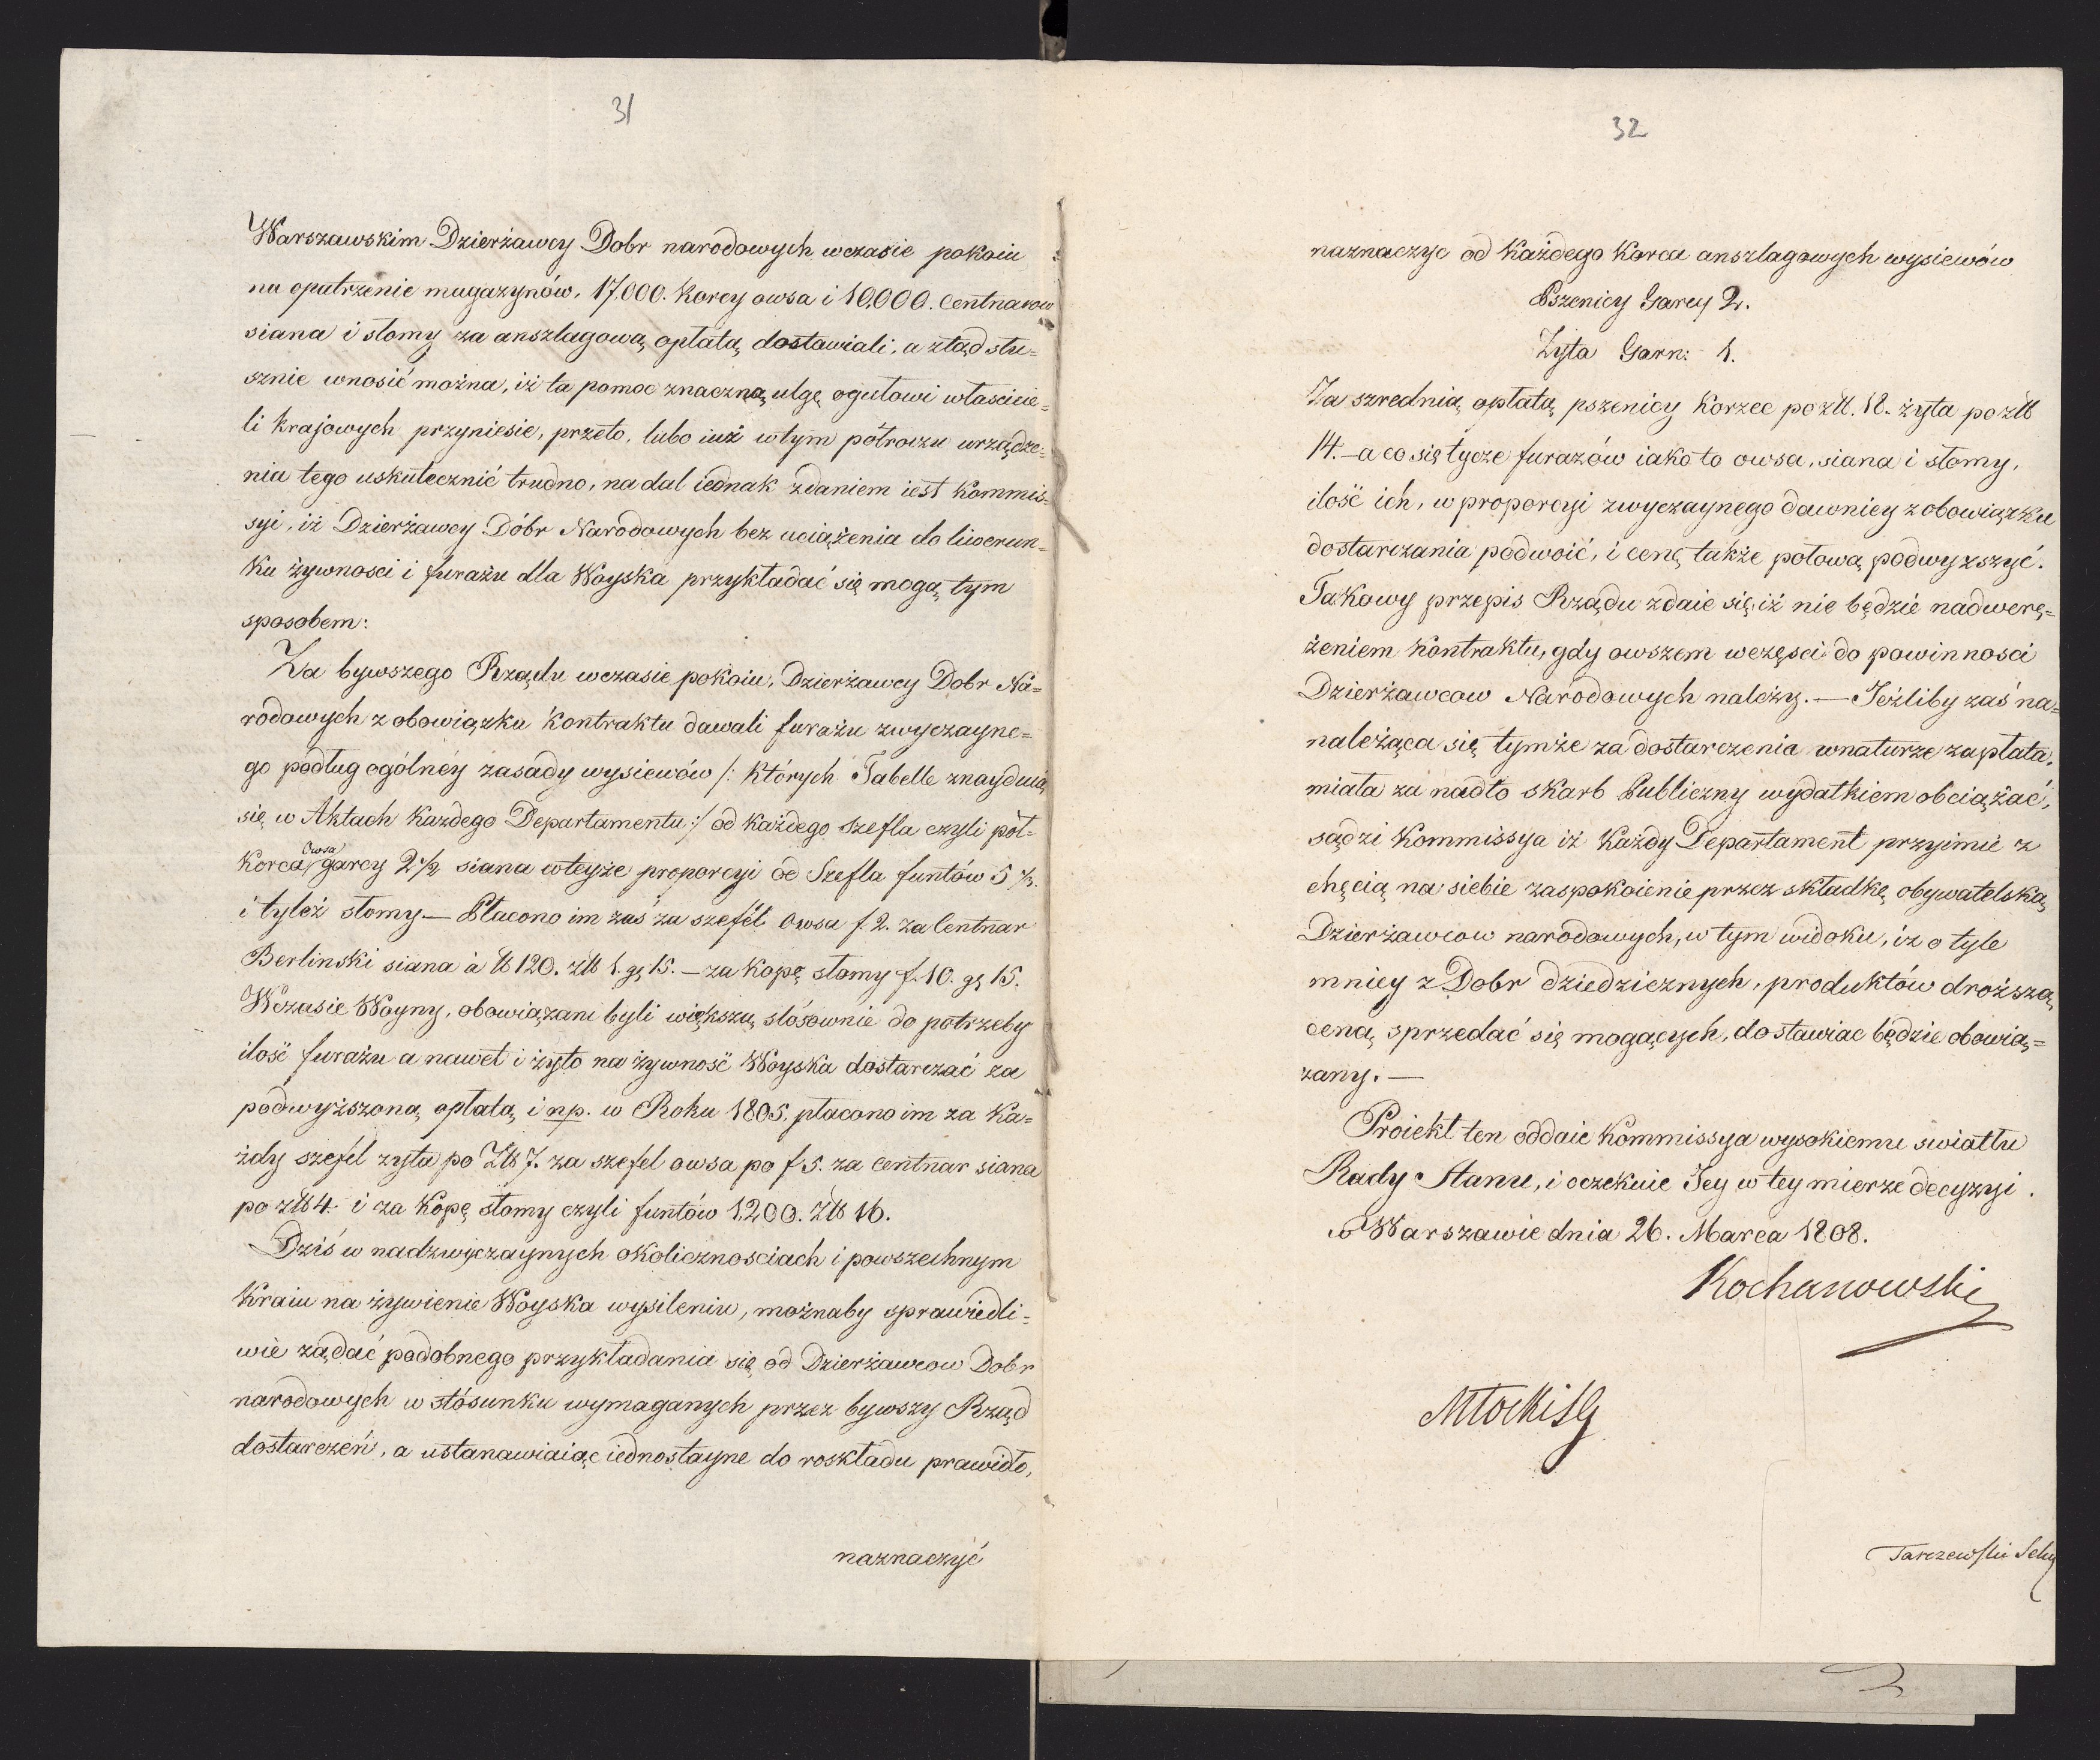 31
Warszawskim Dzierżawcy Dobr narodowych wczasie pokoiu
na opatrzenie magazynów, 17,000. Korcy owsa i 10,000. Centnarow
siana i słomy za anszlagową opłatą dostawiali, a ztąd słu=
sznie wnosić można, iż ta pomoc znaczną ulgę ogułowi właścicie=
li krajowych przyniesie, przeto, lubo iuż wtym półroczu urządze=
nia tego uskutecznić trudno, na dal iednak zdaniem iest Kommis=
syi, iż Dzierżawcy Dóbr Narodowych bez uciążenia do liwerun=
ku żywnosci i furażu dla Woyska przykładać się mogą tym
sposobem:
Za bywszego Rządu wczasie pokoiu, Dzierżawcy Dobr Na=
rodowych z obowiązku kontraktu dawali furażu zwyczayne=
go podług ogólnéy zasady wysiewów /: których Tabelle znayduią
się w Aktach każdego Departamentu :/ od każdego szefla czyli pół-
korca Owsa garcy 2 1/2 siana wteyże proporcyi od Szefla funtów 5 1/2.
i tyleż słomy — Płacono im zaś za szefel Owsa f. 2. za Centnar
Berlinski siana à ℔ 120. zł 1. gr 15. — za kopę słomy f. 10. gr 15.
Wczasie Woyny, obowiązani byli większą stósownie do potrzeby
ilość furażu a nawet i żyto na żywność Woyska dostarczać za
podwyższoną opłatą, i np. w Roku 1805. płacono im za Ka=
żdy szefel żyta po Zł 7. za szefel owsa po f 5. za centnar siana
po zł 4. i za Kopę słomy czyli funtów 1,200. Zł 16.
Dziś w nadzwyczaynych okolicznosciach i powszechnym
Kraiu na żywienie Woyska wysileniu, możnaby sprawiedli=
wie żądać podobnego przykładania się od Dzierżawcow Dobr
narodowych w stósunku wymaganych przez bywszy Rząd
dostarczeń, a ustanawiaiąc iednostayne do roskładu prawidło,
naznaczyć
32
naznaczyc od Każdego Korca anszlagowych wysiewów
Pszenicy Garcy 2.
Żyta Garn: 1.
Za szrednią opłatą pszenicy Korzec po zł. 18. żyta po zł
14. — a co się tycze furazów iako to owsa, siana i słomy,
ilość ich, w proporcyi zwyczaynego dawniey z obowiązku
dostarczania podwoić, i cenę także połową podwyzszyć.
Takowy przepis Rządu zdaie się, iż nie będzie nadwerę=
żeniem Kontraktu, gdy owszem wczęsci do powinnosci
Dzierżawcow Narodowych należy. — Jeżliby zaś na=
należąca się tymże za dostarczenia wnaturze zapłata,
miała za nadto skarb Publiczny wydatkiem obciążać,
sądzi Kommissya iż Każdy Departament przyimie z
chęcią na siebie zaspokoienie przez składkę obywatelską
Dzierżawcow narodowych, w tym widoku, iż o tyle
mniey z Dobr dziedzicznych, produktów droższą
ceną sprzedać się mogących, dostawiac będzie obowią=
zany. —
Proiekt ten oddaie Kommissya wysokiemu swiatłu
Rady Stanu, i oczekuie Jey w tey mierze decyzyi.
w Warszawie dnia 26. Marca 1808.
Kochanowski
Młocki
Tarczewski